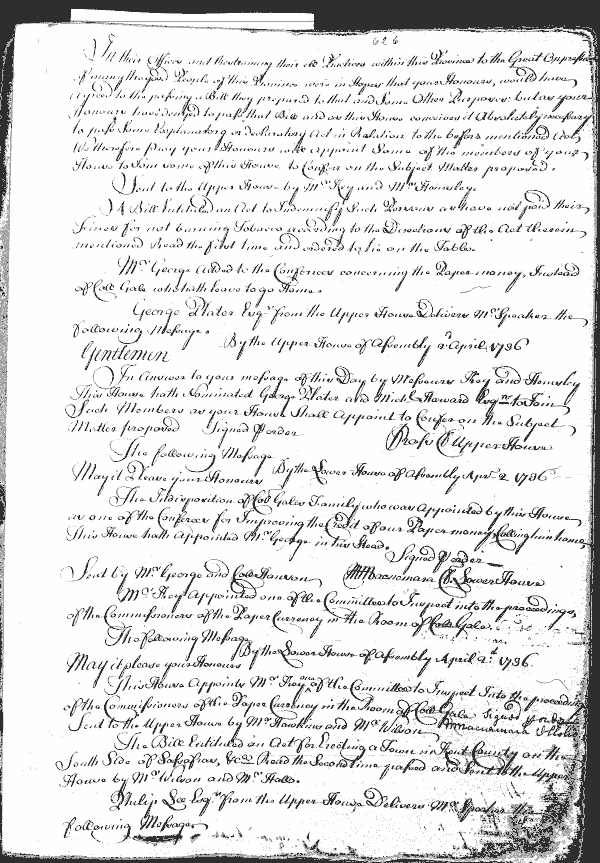 626
In their Offices and the straining their old Practices within this Province to the Great Oppression
of many the good People of this Province were in Hopes that your Honours, would have
Agreed to the passing a Bill they prepared to that and Some Other Purposes: but as your
Honours have denyed to pass that Bill and as this House conceives it Absolutely necessary
to pass Some Explanatory or declaratory Act in Relation to the before mentioned Act
We therefore pray your Honours will Appoint Some of the members of your
House to Join some of this House to Confer on the Subject Matter proposed.
Sent to the Upper House by Mr Key and Mr Hemsley.
A Bill Entituled an Act to Indemnify Such Persons as have not paid their
Fines for not burning Tobacco according to the Directions of the Act therein
mentioned Read the first time and ordered to lie on the Table.
Mr George Added to the Conferees concerning the Paper money, Instead
of Coll Gale who hath leave to go Home.
George Plater Esqr from the Upper House Delivers Mr Speaker the
following Message.
By the Upper House of Assembly 2d April 1736
Gentlemen
In Answer to your message of this Day by Messieurs Key and Hemsley
This House hath Nominated George Plater and Michl Howard Esqrs to Join
Such Members as your House Shall Appoint to Confer on the Subject
Matter proposed Signed p Order
Ross Cl Upper House
The following Message
By the Lower House of Assembly Apr 2 1736
May it Please your Honours
The Indisposition of Coll Gales Family who was Appointed by this House
as one of the Conferees for Improving the Credit of our Paper money, Calling him home,
This House hath Appointed Mr George in his Stead.
Signed p Order
Sent by Mr George and Coll Hanson MMacnemara Cl. Lower House
Mr Key Appointed one of the Committee to Inspect into the proceedings
of the Commissioners of the Paper Currency in the Room of Coll Gale.
The following Message
By the Lower House of Assembly April 2d 1736.
May it please your Honours
This House Appoints Mr Key one of the Committee to Inspect Into the proceedings
of the Commissioners of the Paper Currency in the Room of Coll Gale Signed p Order
Sent to the Upper House by Mr Hawkins and Mr Wilson Macnemara
The Bill Entituled an Act for Erecting a Town in Kent County on the
South Side of Sassafras, &ca Read the Second time passed and Sent to the Upper
House by Mr Wilson and Mr Hall.
Philip Lee Esqr from the Upper House Delivers Mr Speaker the
following Message